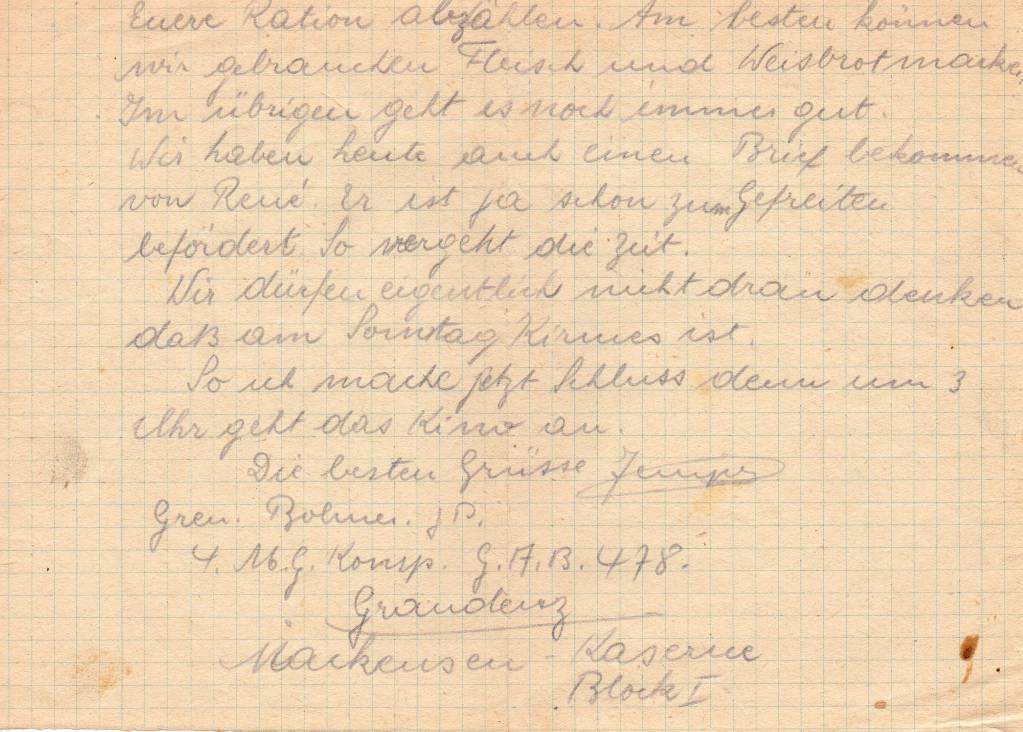 Euere Ration abzählen. Am besten können
wir gebrauchen Fleisch und Weisbrotmarken,
Im übrigen geht es noch immer gut.
Wir haben heute auch einen Brief bekommen
von René. Er ist ja schon zum Gefreiten
befördert. So vergeht die Zeit.
Wir dürfen eigentlich nicht dran denken
daß am Sonntag Kirmes ist.
So ich mache jetzt Schluss denn um 3
Uhr geht das Kino an.
Die besten Grüsse Jempy
Gren. Bohner. J P.
4. M.G. Komp. G.A.B. 478.
Graudenz
Mackensen - Kaserne
Block I